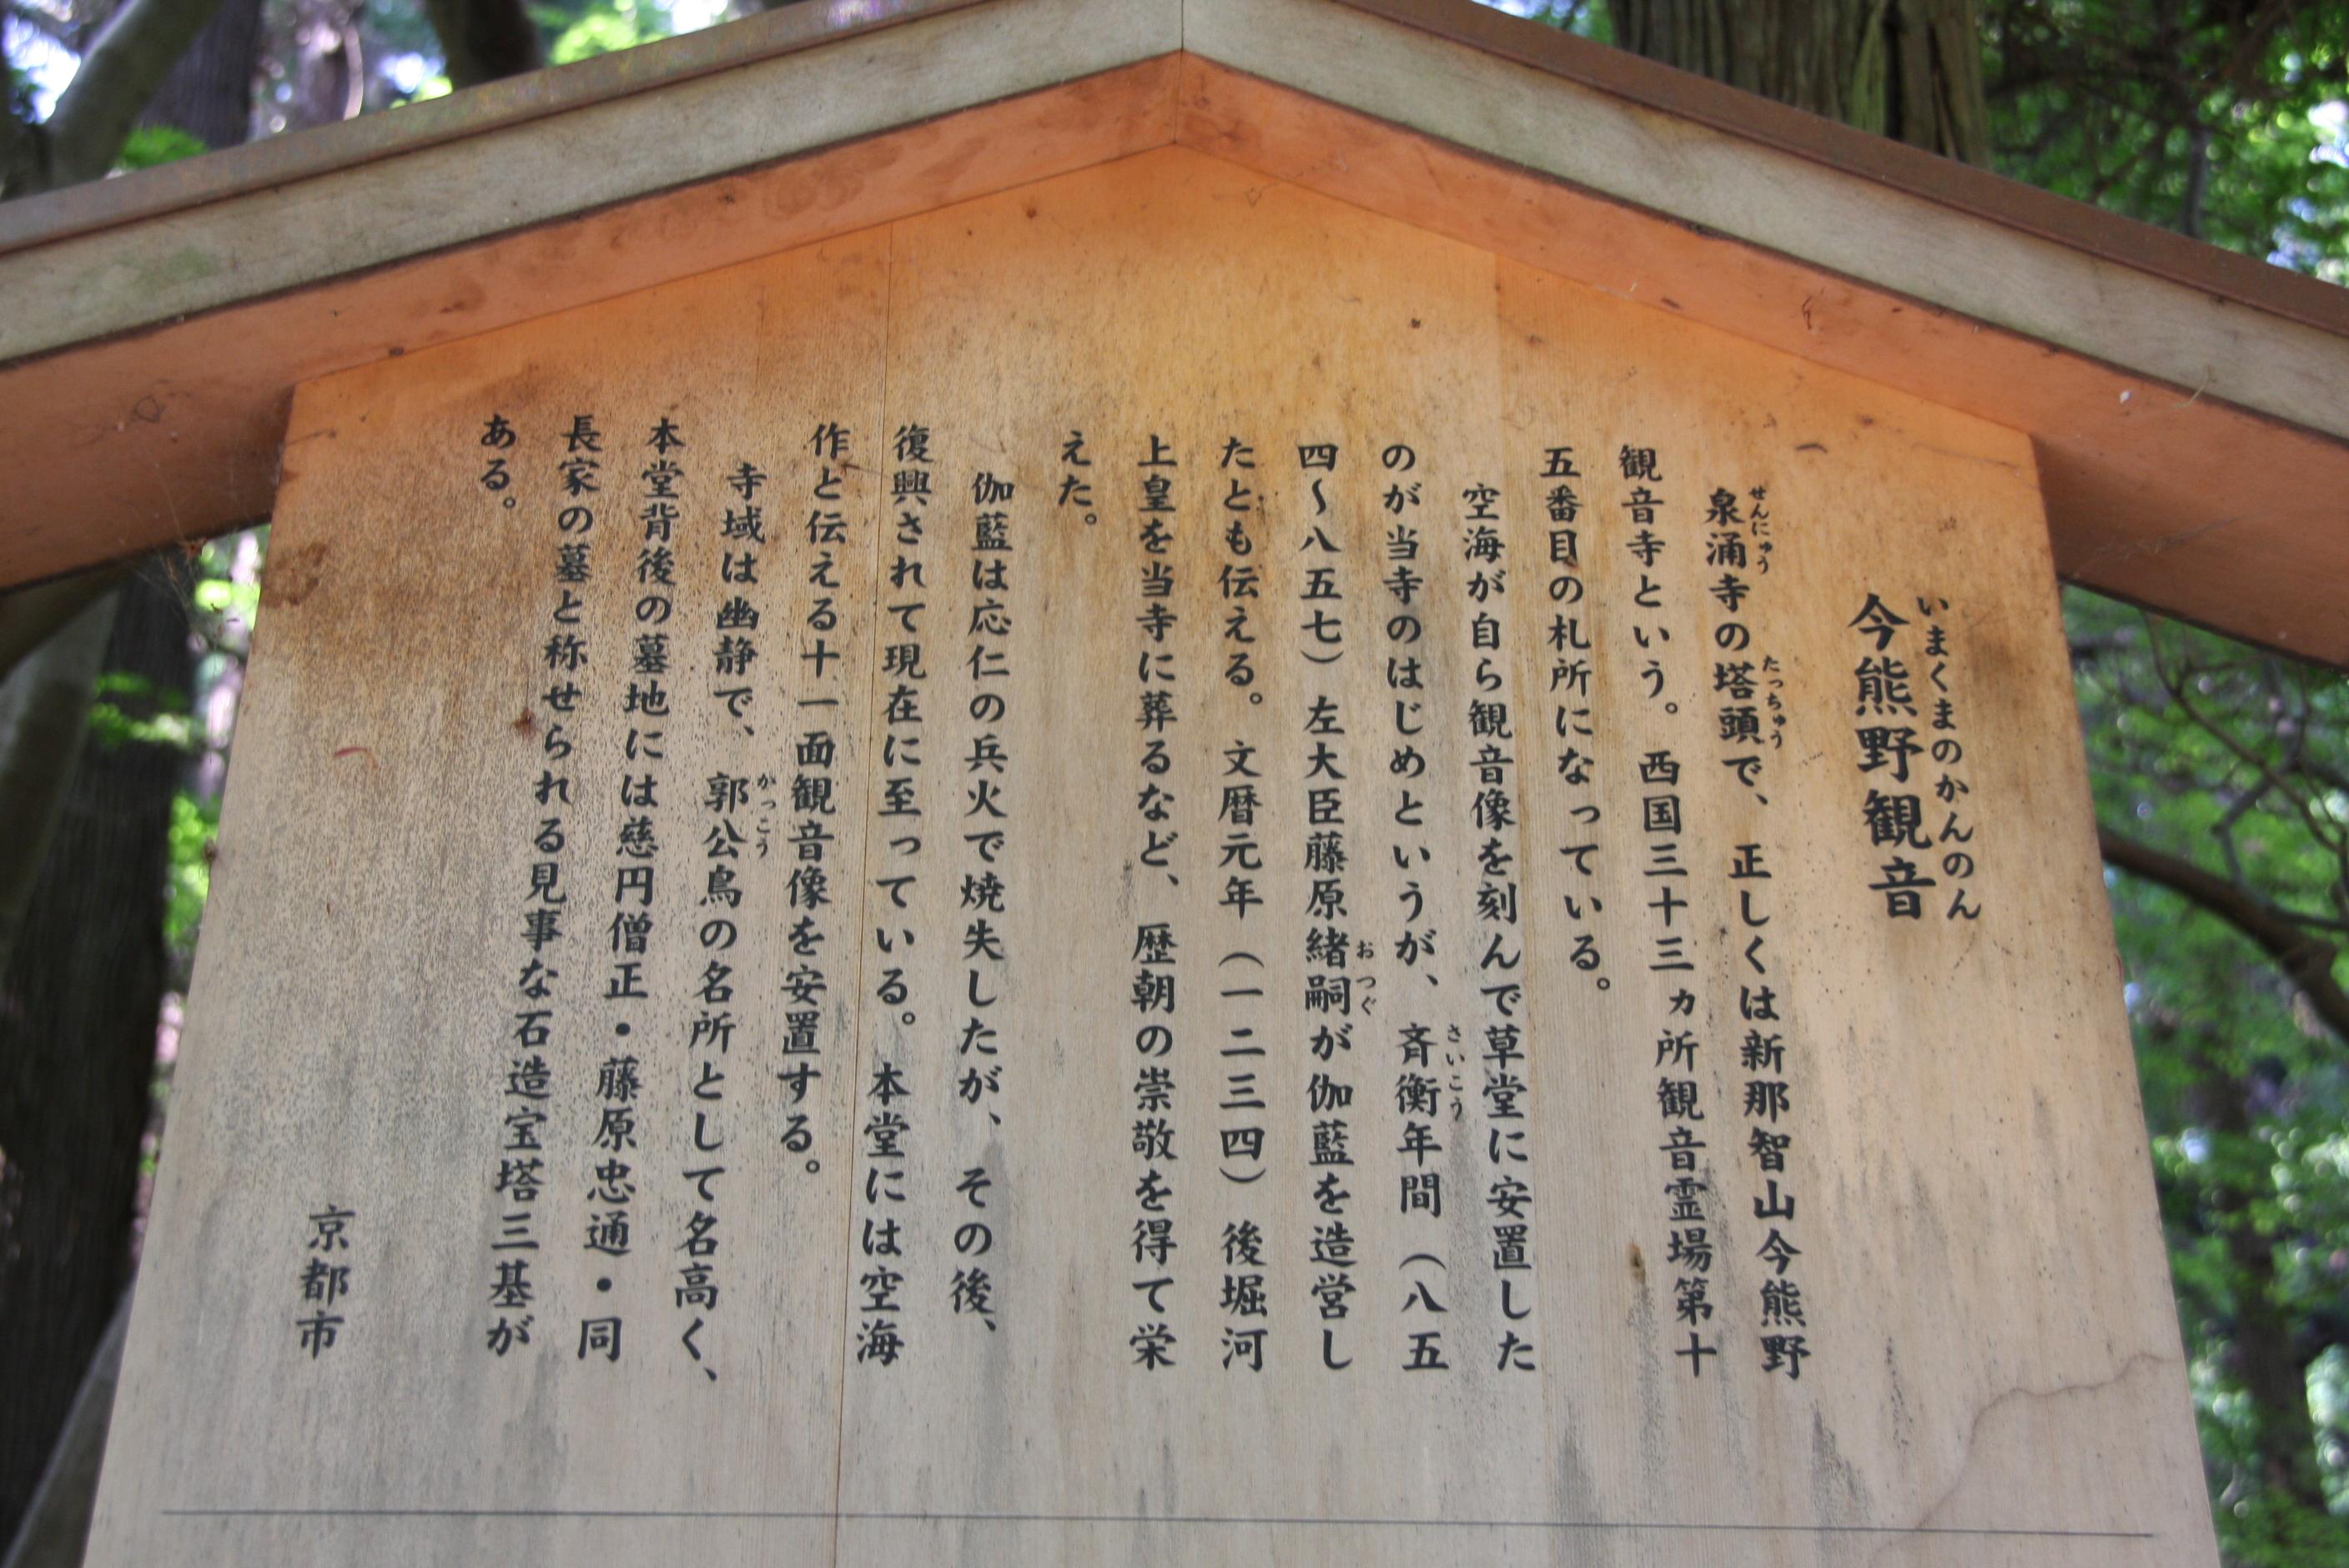 今熊野観音
いまくまのかんのん
泉涌寺の塔頭で、正しくは新那智山今熊野
せんにゅう
たっちゅう
観音寺という。西国三十三ヵ所観音霊場第十
五番目の札所になっている。
空海が自ら観音像を刻んで草堂に安置した
のが当寺のはじめというが、斉衡年間(八五
さいこう
四〜八五七)左大臣藤原緒嗣が伽藍を造営し
おつぐ
たとも伝える。文暦元年(一二三四)後堀河
上皇を当寺に葬るなど、歴朝の崇敬を得て栄
えた。
伽藍は応仁の兵火で焼失したが、その後、
復興されて現在に至っている。本堂には空海
作と伝える十一面観音像を安置する。
寺域は幽静で、郭公鳥の名所として名高く、
かっこう
本堂背後の墓地には慈円僧正・藤原忠通・同
長家の墓と称せられる見事な石造宝塔三基が
ある。
京都市